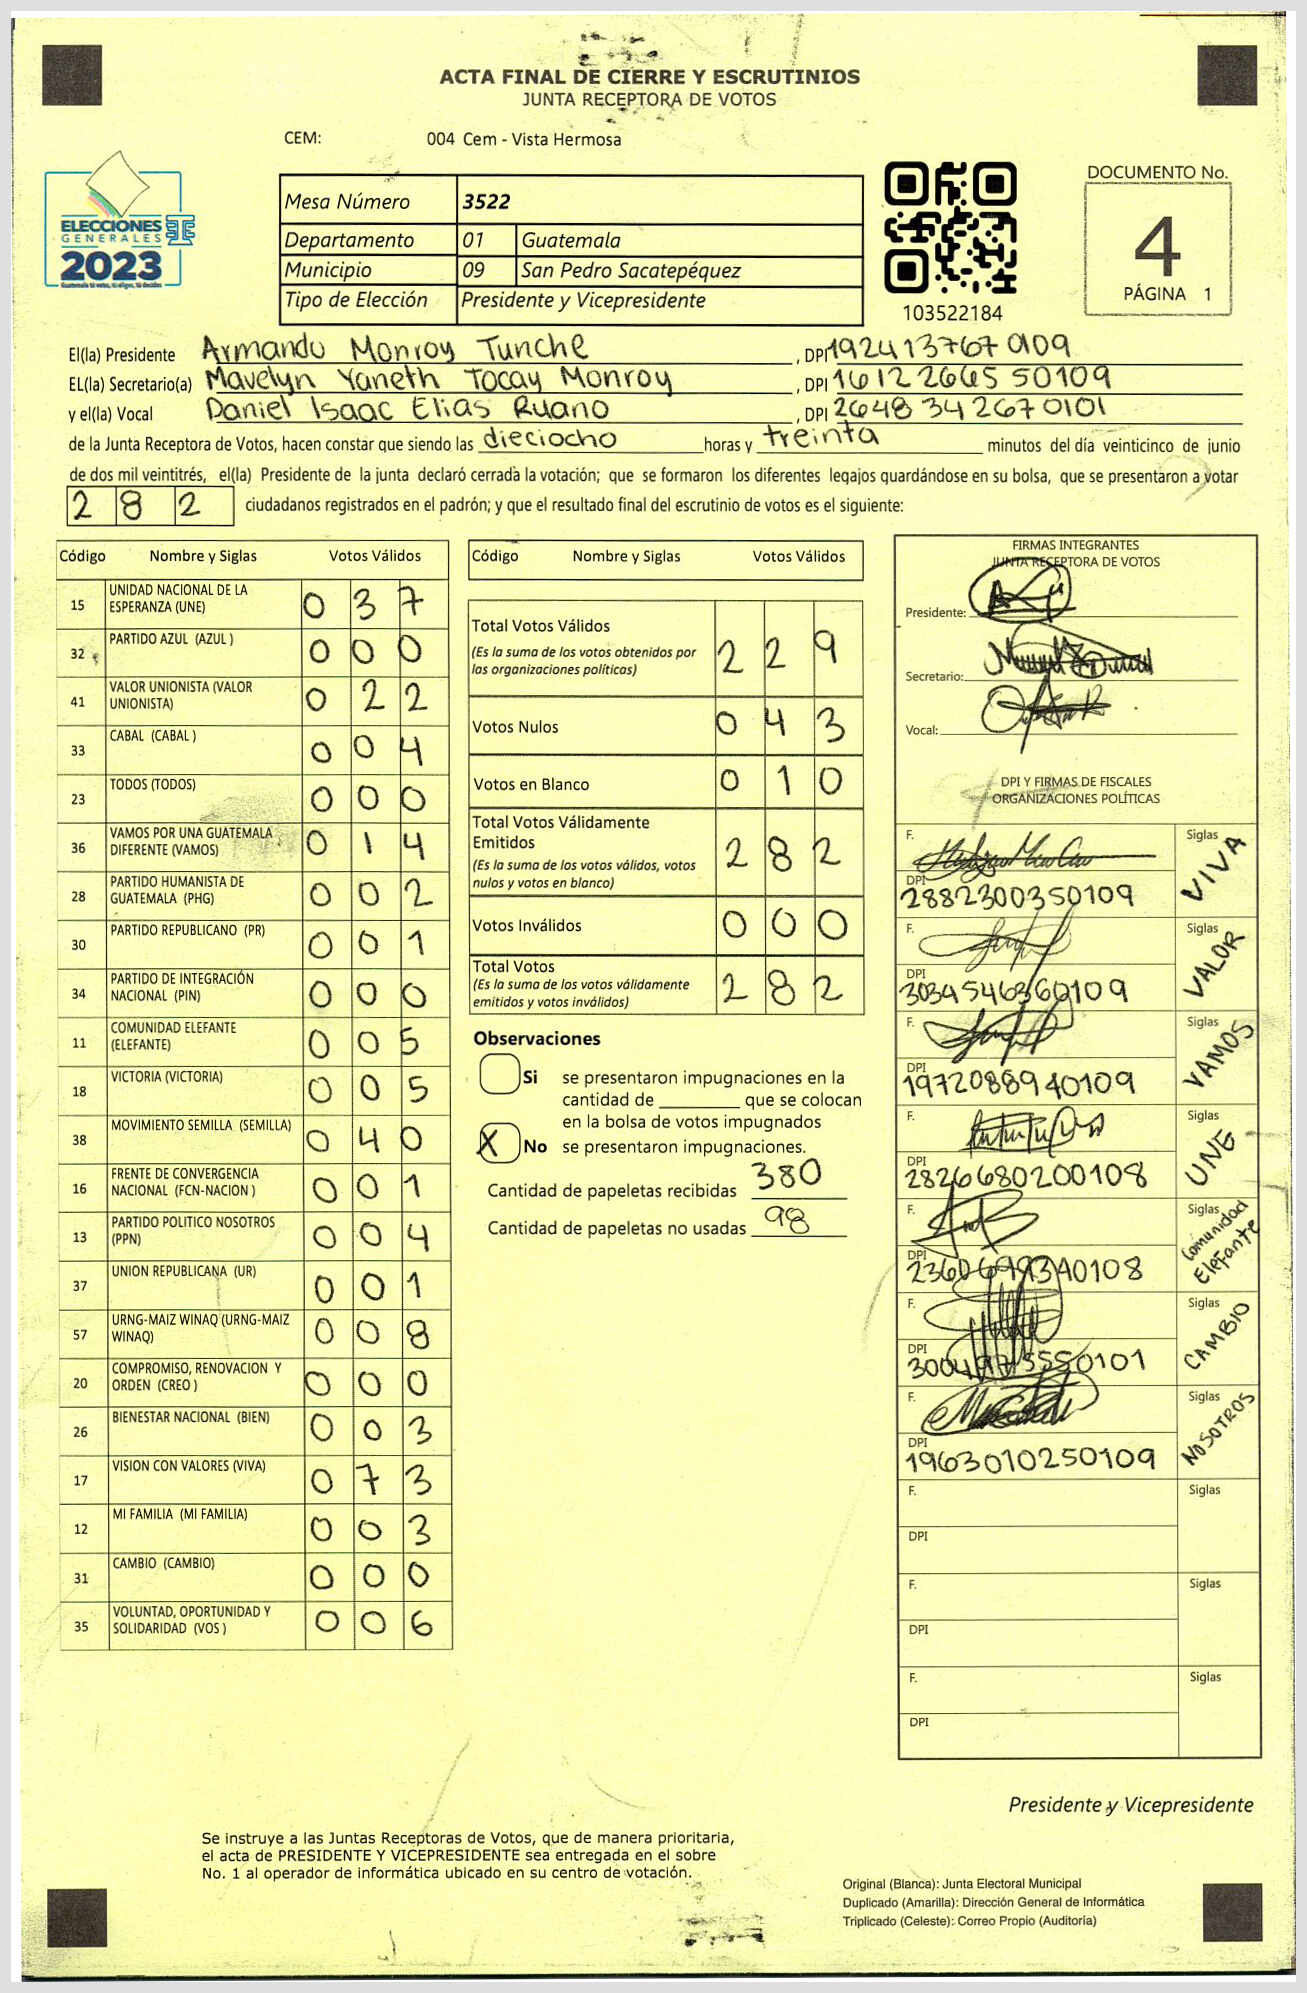 ACTA FINAL DE CIERRE Y ESCRUTINIOS
JUNTA RECEPTORA DE VOTOS
CEM: 004 Cem - Vista Hermosa
ELECCIONES
GENERALES
2023
Mesa Número 3522
Departamento 01 Guatemala
Municipio 09 San Pedro Sacatepéquez
Tipo de Elección Presidente y Vicepresidente
103522184
DOCUMENTO No.
4
PÁGINA 1
El(la) Presidente Armando Monroy Tunche, DPI 1924137670109
EL(la) Secretario(a) Mavelyn Yaneth Tocay Monroy, DPI 1612266550109
y el(la) Vocal Daniel Isaac Elias Ruano, DPI 2648342670101
de la Junta Receptora de Votos, hacen constar que siendo las dieciocho horas y treinta minutos del día veinticinco de junio
de dos mil veintitrés, el(la) Presidente de la junta declaró cerrada la votación; que se formaron los diferentes legajos quardándose en su bolsa, que se presentaron a votar
282 ciudadanos registrados en el padrón; y que el resultado final del escrutinio de votos es el siguiente:
Código Nombre y Siglas Votos Válidos
15 UNIDAD NACIONAL DE LA ESPERANZA (UNE) 0 3 7
32 PARTIDO AZUL (AZUL ) 0 0 0
41 VALOR UNIONISTA (VALOR UNIONISTA) 0 2 2
33 CABAL (CABAL ) 0 0 4
23 TODOS (TODOS) 0 0 0
36 VAMOS POR UNA GUATEMALA DIFERENTE (VAMOS) 0 1 4
28 PARTIDO HUMANISTA DE GUATEMALA (PHG) 0 0 2
30 PARTIDO REPUBLICANO (PR) 0 0 1
34 PARTIDO DE INTEGRACIÓN NACIONAL (PIN) 0 0 0
11 COMUNIDAD ELEFANTE (ELEFANTE) 0 0 5
18 VICTORIA (VICTORIA) 0 0 5
38 MOVIMIENTO SEMILLA (SEMILLA) 0 4 0
16 FRENTE DE CONVERGENCIA NACIONAL (FCN-NACION ) 0 0 1
13 PARTIDO POLITICO NOSOTROS (PPN) 0 0 4
37 UNION REPUBLICANA (UR) 0 0 1
57 URNG-MAIZ WINAQ (URNG-MAIZ WINAQ) 0 0 8
20 COMPROMISO, RENOVACION Y ORDEN (CREO ) 0 0 0
26 BIENESTAR NACIONAL (BIEN) 0 0 3
17 VISION CON VALORES (VIVA) 0 7 3
12 MI FAMILIA (MI FAMILIA) 0 0 3
31 CAMBIO (CAMBIO) 0 0 0
35 VOLUNTAD, OPORTUNIDAD Y SOLIDARIDAD (VOS ) 0 0 6
Código Nombre y Siglas Votos Válidos
Total Votos Válidos 2 2 9
(Es la suma de los votos obtenidos por
las organizaciones políticas)
Votos Nulos 0 4 3
Votos en Blanco 0 1 0
Total Votos Válidamente
Emitidos 2 8 2
(Es la suma de los votos válidos, votos
nulos y votos en blanco)
Votos Inválidos 0 0 0
Total Votos 2 8 2
(Es la suma de los votos válidamente
emitidos y votos inválidos)
Observaciones
Si se presentaron impugnaciones en la
cantidad de ________ que se colocan
en la bolsa de votos impugnados
X No se presentaron impugnaciones.
Cantidad de papeletas recibidas 380
Cantidad de papeletas no usadas 98
FIRMAS INTEGRANTES
JUNTA RECEPTORA DE VOTOS
Presidente:
Secretario:
Vocal:
DPI Y FIRMAS DE FISCALES
ORGANIZACIONES POLÍTICAS
F. Siglas VIVA
DPI 2882300350109
F. Siglas VALOR
DPI 3034546360109
F. Siglas VAMOS
DPI 1972088940109
F. Siglas UNE
DPI 2826680200108
F. Siglas Comunidad Elefante
DPI
F. Siglas CAMBIO
DPI
F. Siglas NOSOTROS
DPI 1963010250109
F. Siglas
DPI
F. Siglas
DPI
F. Siglas
DPI
Presidente y Vicepresidente
Se instruye a las Juntas Receptoras de Votos, que de manera prioritaria,
el acta de PRESIDENTE Y VICEPRESIDENTE sea entregada en el sobre
No. 1 al operador de informática ubicado en su centro de votación.
Original (Blanca): Junta Electoral Municipal
Duplicado (Amarilla): Dirección General de Informática
Triplicado (Celeste): Correo Propio (Auditoría)